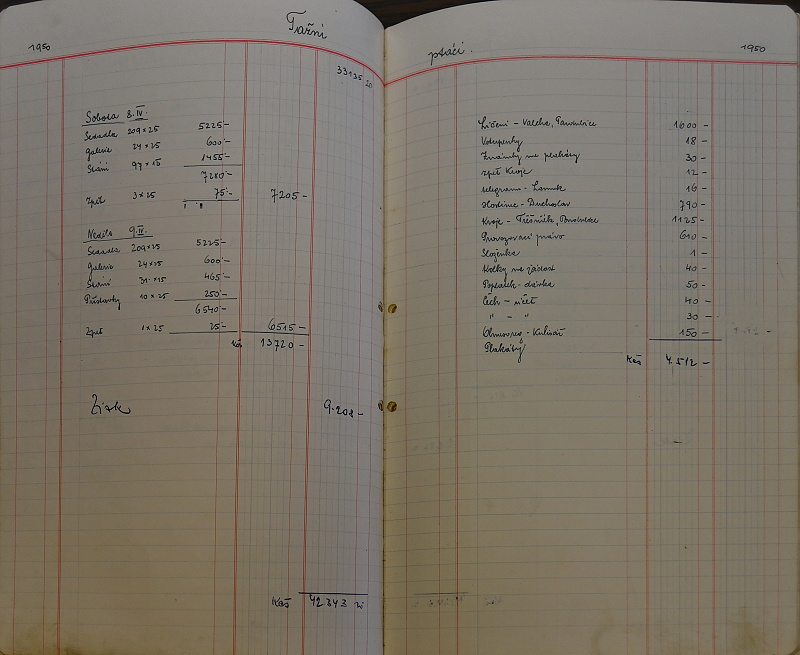 1950
Tažní
33135 20
Sobota 8.IV.
Sedadla 209 x 25 5225-
galerie 24 x 25 600-
Stání 97 x 15 1455-
7280-
Zpět 3 x 25 75- 7205-
Neděle 9.IV.
Sedadla 209 x 25 5225-
galerie 24 x 25 600-
Stání 31 x 15 465-
Přístavky 10 x 25 250-
6540-
Zpět 1 x 25 25- 6515-
Kčs 13720-
Zisk 9.208-
Kčs 42343
ptáci.
1950
Líčení - Valcha, 1600-
Vstupenky 18-
Známky na plakáty 30-
zpět Kroje 12-
telegram - 16-
Hostina - Duchoslav 790-
Kroje - 1125-
Provozovací právo 610-
Složenka 1-
Kolky na žádost 40-
Poplatek - dávka 50-
Čech - účet 40-
" - " 30-
150-
Plakáty
Kčs 4.512-